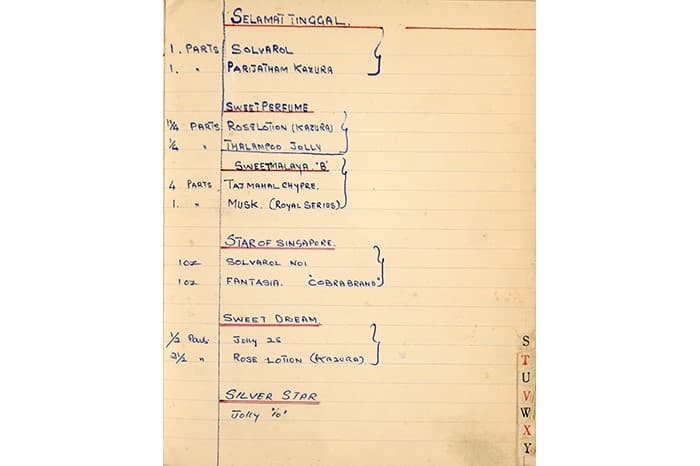 SELAMAT TINGGAL.
1. PARTS SOLVAROL
1. " PARIJATHAM KAZURA
SWEET PERFUME
1¼ PARTS ROSE LOTION (KAZURA)
¼ " THALAMPOO JOLLY
SWEETMALAYA. 'B'
4 PARTS TAJ MAHAL CHYPRE.
1. " MUSK. (ROYAL SERIES)
STAR OF SINGAPORE.
1 OZ SOLVAROL NO1
1 OZ FANTASIA. "COBRA BRAND"
SWEET DREAM.
½ Parts Jolly 25
2½ " ROSE LOTION (KAZURA)
SILVER STAR
Jolly
S
T
U
V
W
X
Y